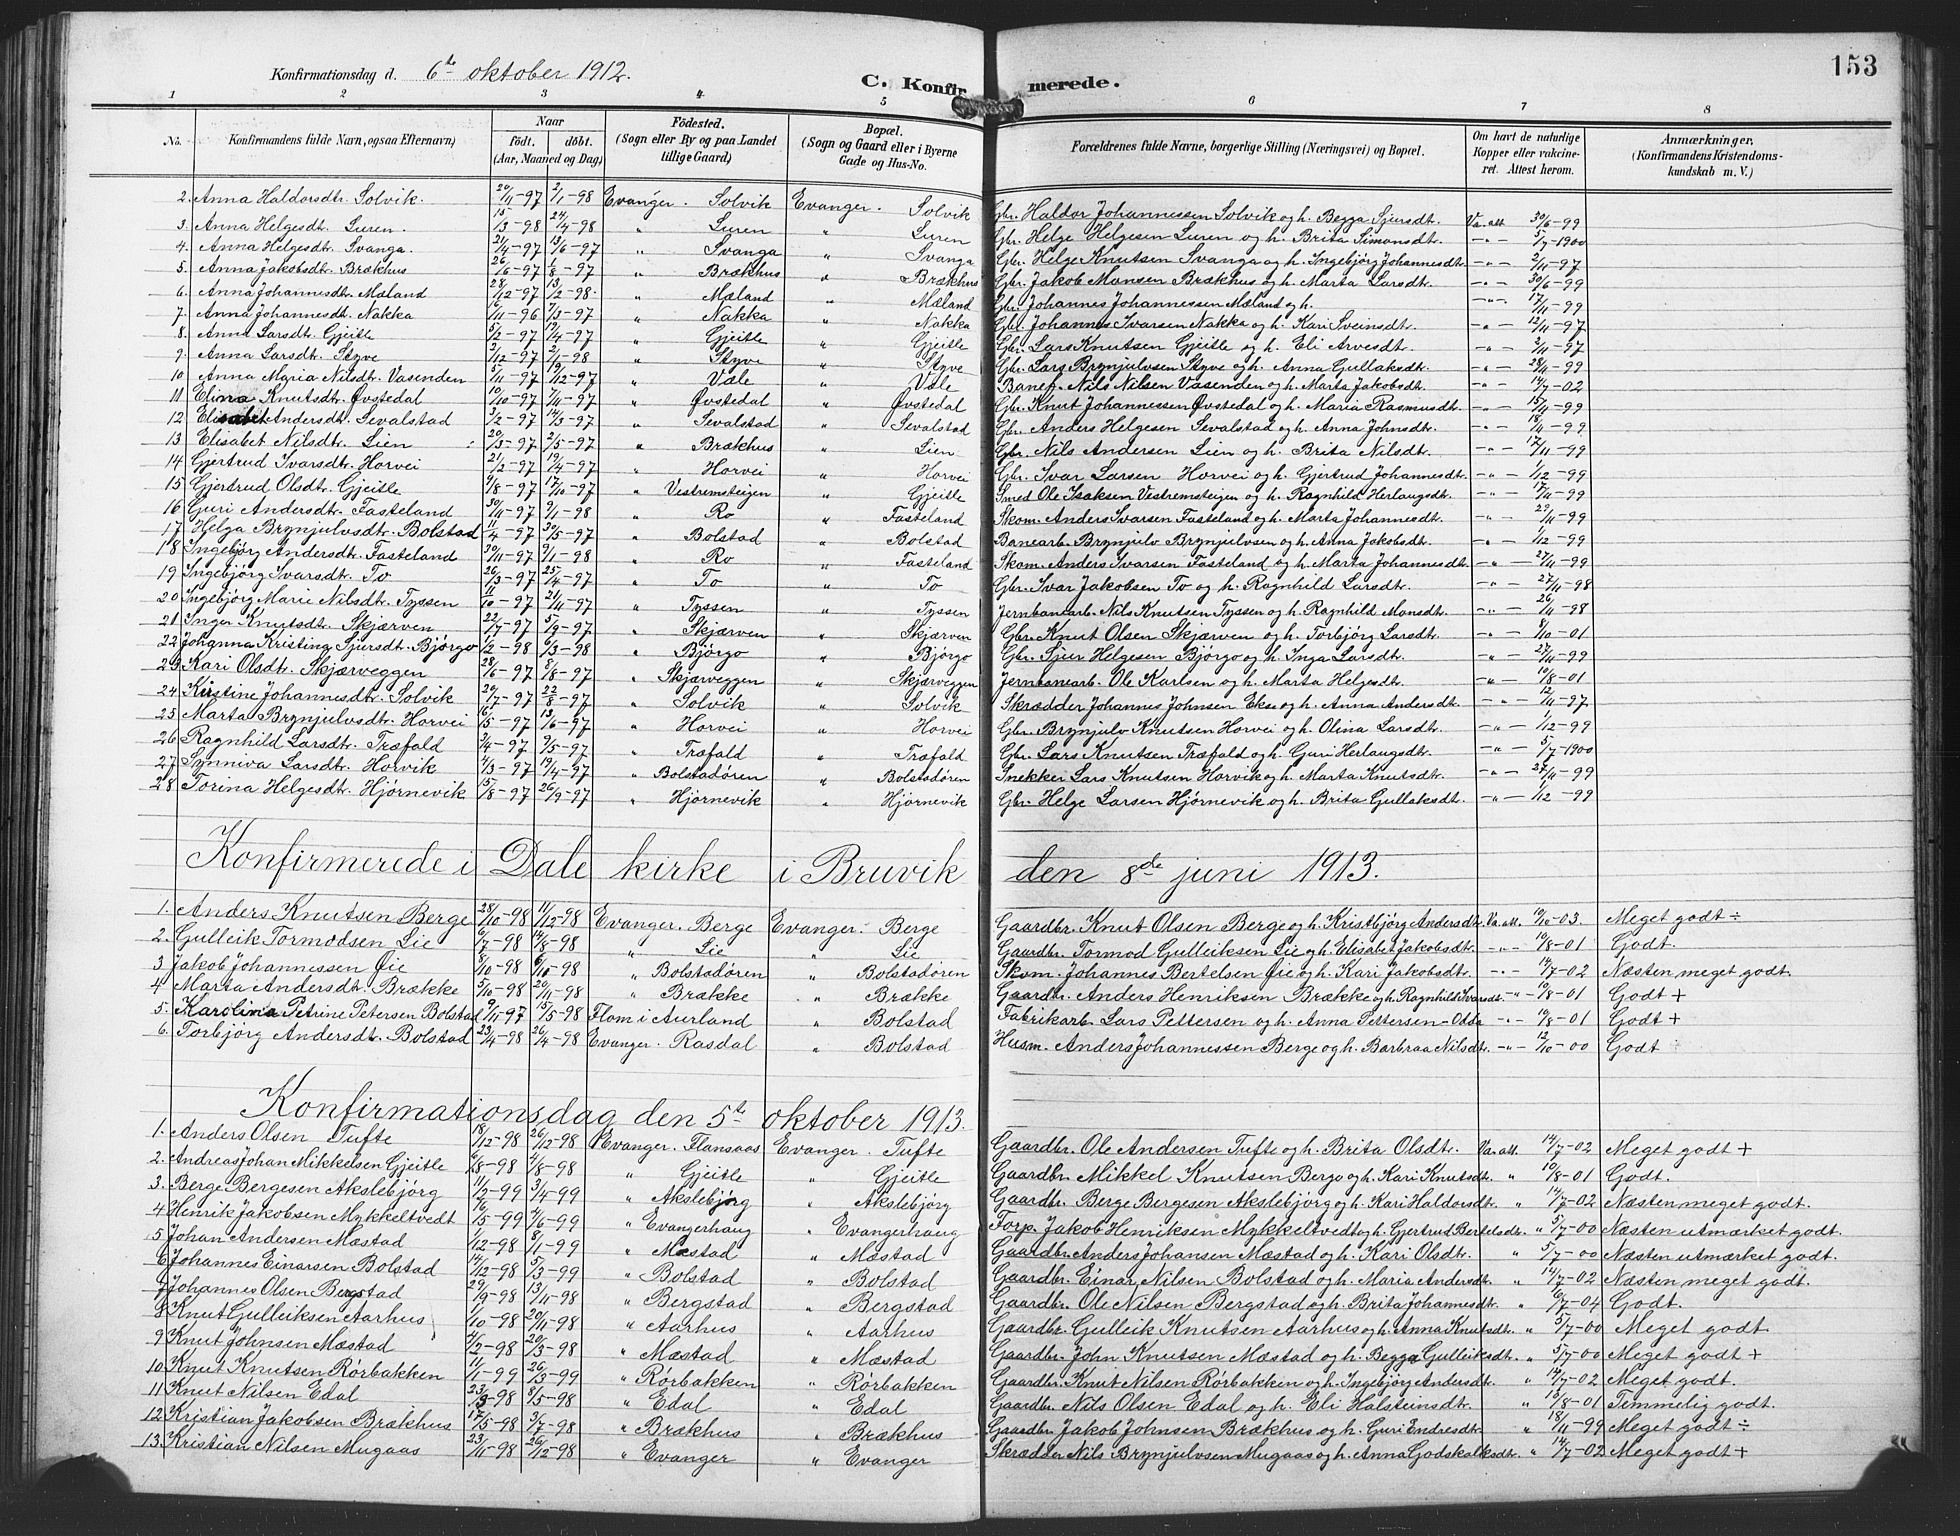 153
Konfirmationsdag d. 6te oktober 1912.
C. Konfirmerede.
1 2 3 4 5 6 7 8
No. Konfirmandens fulde Navn, ogsaa Efternavn) Naar født. døbt. (Aar, Maaned og Dag) Fødested. (Sogn eller By og paa Landet tillige Gaard) Bopæl. (Sogn og Gaard eller i Byerne Gade og Hus-No. Forældrenes fulde Navne, borgerlige Stilling (Næringsvei) og Bopæl. Om havt de naturlige Kopper eller vakcineret. Attest herom. Anmærkninger, (Konfirmandens Kristendomskundskab m. V.)
2. Anna Haldorsdt. Solvik. 20/11-97 2/1-98 Evanger. Solvik Evanger. Solvik Gbr. Haldor Johannessen Solvik og h. Begga Sjursdt. Va. att 30/6-99
3. Anna Helgesdt. Luren. 15/3-98 24/4-98 " Luren " Luren Gbr. Helge Helgesen Luren og h. Brita Simonsdt. -"- 5/7-1900
4. Anna Helgesdt. Svanga. 21/4-97 13/6-97 " Svanga " Svanga Gbr. Helge Knutsen Svanga og h. Ingebjørg Johannesdt. -"- 2/11-97
5. Anna Jakobsdt. Brækhus 26/6-97 1/8-97 " Brækhus " Brækhus Gbr. Jakob Monsen Brækhus og h. Marta Larsdt. -"- 30/6-99
6. Anna Johannesdt. Mæland 28/12-97 13/2-98 " Mæland " Mæland Gbr. Johannes Johannessen Mæland og h. -"- 17/11-99
7. Anna Johannesdt. Nakka 6/11-96 7/3-97 " Nakka " Nakka Gbr. Johannes Ivarsen Nakka og h. Kari Sveinsdt. -"- 12/11-97
8. Anna Larsdt. Gjeitle 5/2-97 19/4-97 " Gjeitle " Gjeitle Gbr. Lars Knutsen Gjeitle og h. Eli Arvesdt. -"- 2/11-97
9. Anna Larsdt. Styve 2/12-97 2/1-98 " Styve " Styve Gbr. Lars Brynjulvsen Styve og h. Anna Gullaksdt. -"- 28/4-99
10 Anna Maria Nilsdt. Vasenden 5/11-97 19/12-97 " Væle " Væle Banef. Nils Nilsen Vasenden og h. Marta Jakobsdt. -"- 14/7-02
11 Elina Knutsdt. Øvstedal 10/10-97 7/11-97 " Øvstedal " Øvstedal Gbr. Knut Johannessen Øvstedal og h. Maria Rasmusdt. -"- 15/11-99
12 Elisabet Andersdt. Sevalstad 3/2-97 14/3-97 " Sevalstad " Sevalstad Gbr. Anders Helgesen Sevalstad og h. Anna Johnsdt. -"- 18/11-99
13 Elisabet Nilsdt. Lien 20/3-97 2/5-97 " Brækhus " Lien Gbr. Nils Andersen Lien og h. Brita Nilsdt. -"- 17/11-99
14 Gjertrud Ivarsdt. Horvei 21/2-97 19/4-97 " Horvei " Horvei Gbr. Ivar Larsen Horvei og h. Gjertrud Johannesdt. -"- 1/12-99
15 Gjertrud Olsdt. Gjeitle 9/8-97 17/10-97 " Vestremsteigen " Gjeitle Smed Ole Isaksen Vestremsteigen og h. Ragnhild Herlaugsdt. -"- 17/11-99
16 Guri Andersdt. Fasteland 30/11-97 9/1-98 " Ro " Fasteland Skom. Anders Ivarsen Fasteland og h. Marta Johannesdt. -"- 27/11-99
17 Helga Brynjulvsdt. Bolstad 11/4-97 30/5-97 " Bolstad " Bolstad Banearb. Brynjulv Brynjulvsen og h. Anna Jakobsdt. -"- 1/12-99
18 Ingebjørg Andersdt. Fasteland 30/11-97 9/1-98 " Ro " Fasteland Skom. Anders Ivarsen Fasteland og h. Marta Johannesdt. -"- 27/11-99
19 Ingebjørg Ivarsdt. To 26/3-97 25/4-97 " To " To Gbr. Ivar Jakobsen To og h. Ragnhild Larsdt. -"- 27/11-98
20 Ingebjørg Marie Nilsdt. Tyssen 11/10-97 21/11-97 " Tyssen " Tyssen Jernbanearb. Nils Knutsen Tyssen og h. Ragnhild Monsdt. -"- 26/11-98
21 Inger Knutsdt. Skjærven 22/7-97 5/9-97 " Skjærven " Skjærven Gbr. Knut Olsen Skjærven og h. Torbjørg Larsdt. -"- 8/10-01
22 Johanna Kristina Sjursdt. Bjørgo 1/2-98 6/3-98 " Bjørgo " Bjørgo Gbr. Sjur Helgesen Bjørgo og h. Inga Larsdt. -"- 27/11-99
23 Kari Olsdt. Skjærveggen 28/6-97 8/8-97 " Skjærveggen " Skjærveggen Jernbanearb. Ole Karlsen og h. Marta Helgesdt. -"- 10/8-01
24 Kristine Johannesdt. Solvik 20/7-97 22/8-97 " Solvik " Solvik Skrædder Johannes Johnsen Ekse og h. Anna Andersdt. -"- 12/11-97
25 Marta Brynjulvsdt. Horvei 16/5-97 13/6-97 " Horvei " Horvei Gbr. Brynjulv Knutsen Horvei og h. Olina Larsdt. -"- 1/12-99
26 Ragnhild Larsdt. Træfald 3/4-97 9/5-97 " Træfald " Træfald Gbr. Lars Knutsen Træfald og h. Guri Herlaugsdt. -"- 5/7-1900
27 Synneva Larsdt. Horvik 4/3-97 19/4-97 " Bolstadøren " Bolstadøren Snekker Lars Knutsen Horvik og h. Marta Knutsdt. -"- 27/11-99
28 Torina Helgesdt. Hjørnevik 15/8-97 26/9-97 " Hjørnevik " Hjørnevik Gbr. Helge Larsen Hjørnevik og h. Brita Gullaksdt. -"- 1/12-99
Konfirmerede i Dale kirke i Bruvik den 8de juni 1913.
1. Anders Knutsen Berge 28/10-98 11/12-98 Evanger. Berge Evanger. Berge Gaardbr. Knut Olsen Berge og h. Kristbjørg Andersdt. Va. att. 19/10-03. Meget godt ÷
2. Gulleik Tormodsen Lie 6/7-98 14/8-98 " Lie " Lie Gaardbr. Tormod Gulleiksen Lie og h. Elisabet Jakobsdt. -"- 10/8-01 Godt.
3 Jakob Johannessen Øie 8/10-98 6/11-98 " Bolstadøren " Bolstadøren Skom. Johannes Bertelsen Øie og h. Kari Jakobsdt. -"- 14/7-02 Næsten meget godt.
4 Marta Andersdt. Brække 5/10-98 20/11-98 " Brække " Brække Gaardbr. Anders Henriksen Brække og h. Ragnhild Ivarsdt. -"- 10/8-01 Godt +
5. Karolina Petrine Petersen Bolstad 9/11-97 15/5-98 Flom i Aurland " Bolstad Fabrikarb. Lars Pettersen og h. Anna Pettersen - Odda -"- 10/8-01 Godt +
6. Torbjørg Andersdt. Bolstad 23/4-98 26/4-98 Evanger. Rasdal " Bolstad Husm. Anders Johannessen Berge og h. Barbraa Nilsdt. -"- 12/10-00 Godt
Konfirmationsdag den 5te oktober 1913.
1. Anders Olsen Tufte 18/12-98 26/12-98 Evanger. Flansaas Evanger. Tufte Gaardbr. Ole Andersen Tufte og h. Brita Olsdt. Va. att. 14/7-02 Meget godt +
2. Andreas Johan Mikkelsen Gjeitle 6/8-98 4/8-98 " Gjeitle " Gjeitle Gaardbr. Mikkel Knutsen Bergo og h. Kari Knutsdt. " 10/8-01 Godt.
3. Berge Bergesen Akslebjørg 11/2-99 3/4-99 " Akslebjørg " Akslebjørg Gaardbr. Berge Bergesen Akslebjørg og h. Kari Haldorsdt. " 14/7-02 Næsten meget godt.
4 Henrik Jakobsen Mykkeltvedt 16/5-99 4/6-99 " Evangerhaug " Evangerhaug Forp. Jakob Henriksen Mykkeltvedt og h. Gjertrud Bertelsdt. " 5/7-00 Næsten utmærket godt.
5 Johan Andersen Mæstad 4/12-98 8/1-99 " Mæstad " Mæstad Gaardbr. Anders Johansen Mæstad og h. Kari Olsdt. " 5/7-00 Næsten utmærket godt.
6 Johannes Einarsen Bolstad 14/12-98 5/3-99 " Bolstad " Bolstad Gaardbr. Einar Nilsen Bolstad og h. Maria Andersdt. " 14/7-02 Næsten meget godt.
7 Johannes Olsen Bergstad 29/9-98 13/11-98 " Bergstad " Bergstad Gaardbr. Ole Nilsen Bergstad og h. Brita Johannesdt. " 16/7-04 Godt.
8 Knut Gulleiksen Aarhus 1/10-98 20/11-98 " Aarhus " Aarhus Gaardbr. Gulleik Knutsen Aarhus og h. Anna Knutsdt. " 5/7-00 Meget godt
9 Knut Johnsen Mæstad 4/2-98 20/3-98 " Mæstad " Mæstad Gaardbr. John Knutsen Mæstad og h. Begga Gulleiksdt. " 5/7-00 Meget godt +
10. Knut Knutsen Rørbakken 11/1-99 26/3-99 " Rørbakken " Rørbakken Gaardbr. Knut Nilsen Rørbakken og h. Ingebjørg Andersdt. " 14/7-02 Meget godt.
11 Knut Nilsen Edal 23/3-98 8/5-98 " Edal " Edal Gaardbr. Nils Olsen Edal og h. Eli Halsteinsdt. " 10/8-01 Temmelig godt.
12 Kristian Jakobsen Brækhus 17/5-98 3/7-98 " Brækhus " Brækhus Gaardbr. Jakob Johnsen Brækhus og h. Guri Endresdt. " 18/11-99 Meget godt ÷
13. Kristian Nilsen Mugaas 23/11-98 26/12-98 " Evanger " Evanger Skrædder Nils Brynjulvsen Mugaas og h. Anna Godskalksdt. " 14/7-02 Meget godt +